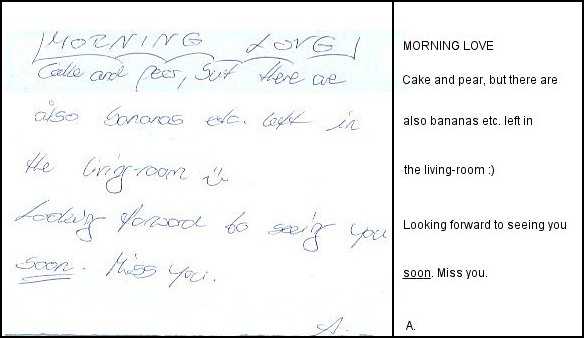 MORNING LOVE
Cake and pear, but there are
also bananas etc. left in
the living-room :)
Looking forward to seeing you
soon. Miss you.
A.
MORNING LOVE
Cake and pear, but there are
also bananas etc. left in
the living-room :)
Looking forward to seeing you
soon. Miss you.
A.